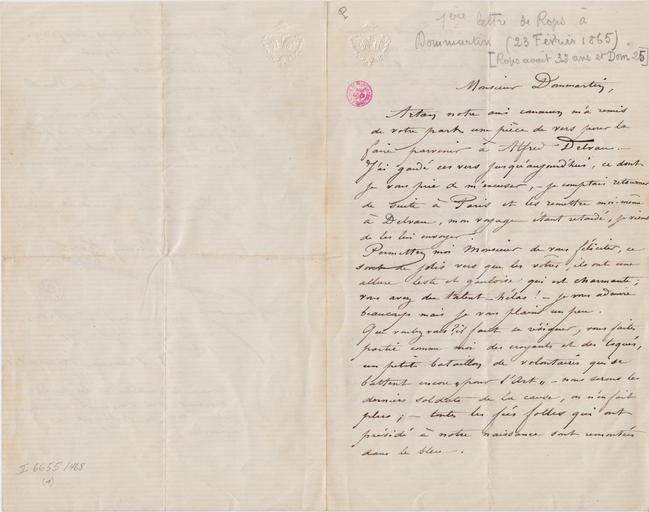 1ère lettre de Rops à
Dommartin (23 Février 1865)
[Rops avait 32 ans et Dom. 25]
Monsieur Dommartin,
Artan notre ami commun m'a remis
de votre part une pièce de vers pour la
faire parvenir à Alfred Delvau. –
J'ai gardé ces vers jusqu'aujourd'hui, ce dont
je vous prie de m'excuser, – je comptais retourner
de suite à Paris et les remettre moi-même
à Delvau, mon voyage étant retardé, je viens
de les lui envoyer
Permettez moi Monsieur de vous féliciter, ce
sont de jolis vers que les vôtres, ils ont une
allure leste et gauloise qui est charmante;
vous avez du talent – hélas! – je vous admire
beaucoup mais je vous plains un peu.
Que voulez vous? il faut se résigner, vous faites
partie comme moi des croyants et des toqués,
un petit bataillon de volontaires qui se
battent encore „pour l'Art" – nous serons les
derniers soldats de la cause, on n'en fait
plus; – toutes les fées folles qui ont
présidé à notre naissance sont remontées
dans le bleu.
I 6655/468
(1)